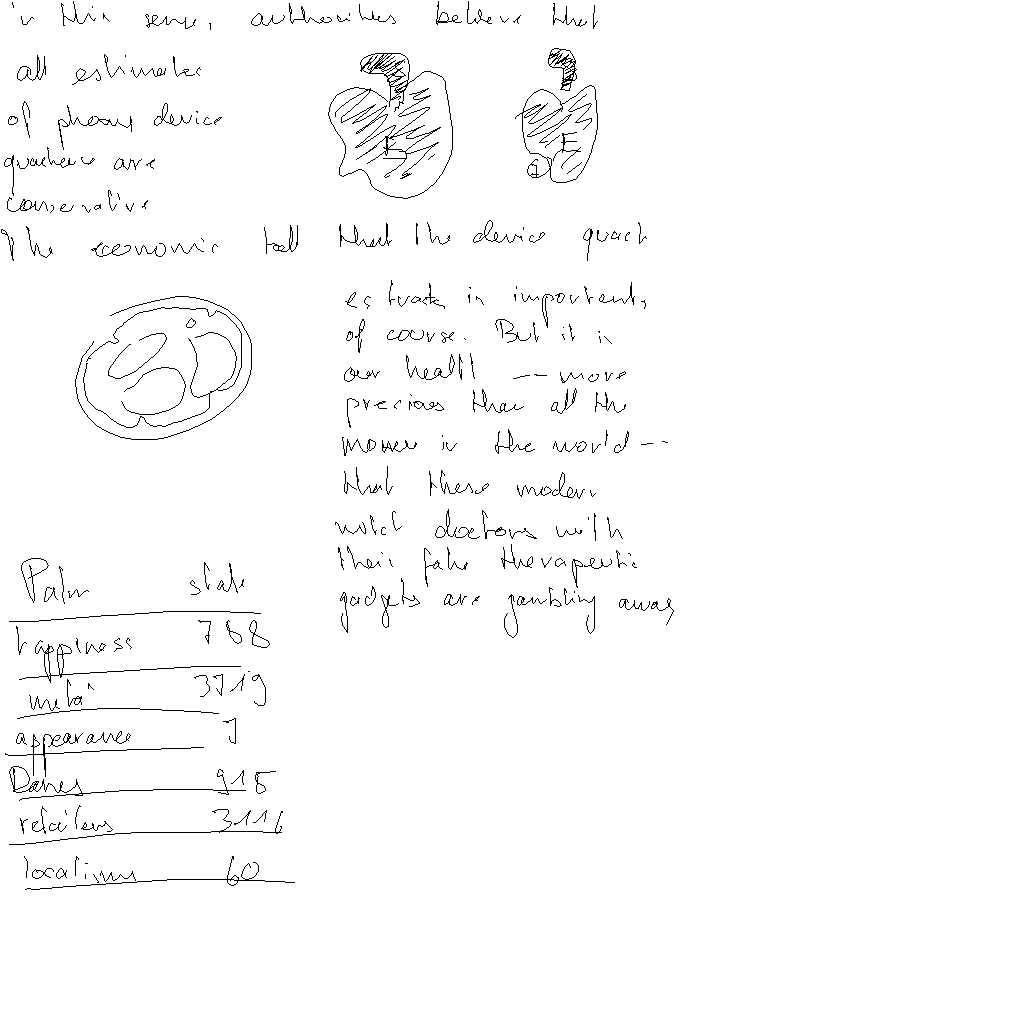 in this sense, authorities believe that
all estimates
of phony device
quackery are
conservative
E
E
The economic toll that the device quack
extracts is important,
of course. But it is
our health -- more
precious than all the
money in the world --
that these modern
witch doctors with
their fake therapeutic
gadgets are gambling away
Palm state
happiness 768
metal 3719
appearance 7
Danes 918
retailers 3116
locations 60